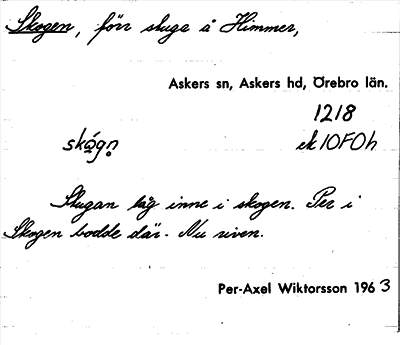 Skogen, förr stuga å Himmer,
Askers sn, Askers hd, Örebro län.
1218
skógn̥ ek 10F0h
Stugan låg inne i skogen. Per i
Skogen bodde där. Nu riven.
Per-Axel Wiktorsson 1963